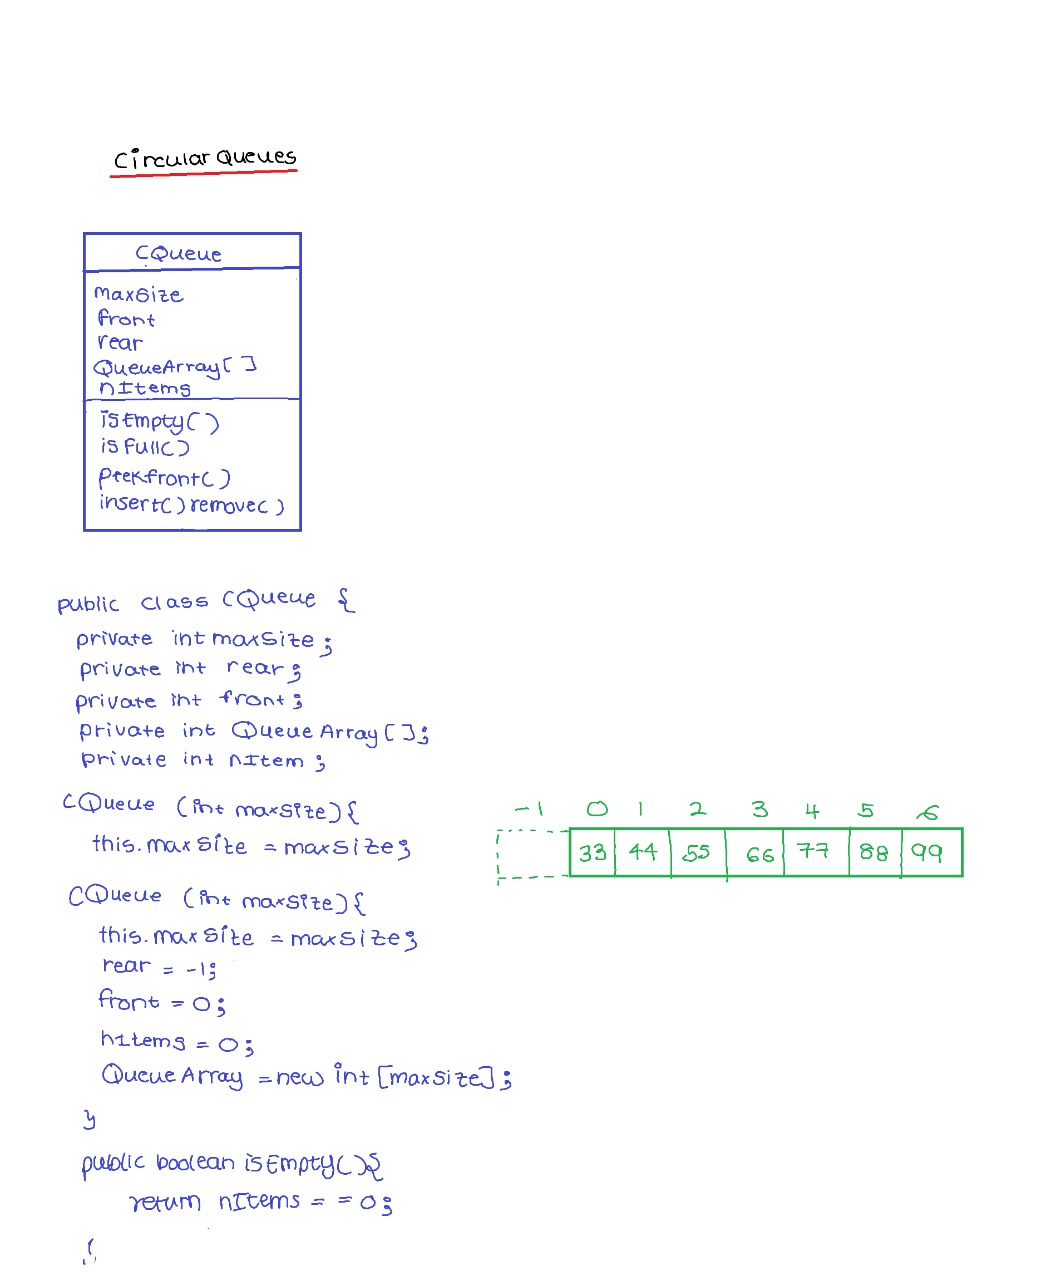 Circular Queues
CQueue
maxSize
front
rear
QueueArray[ ]
nItems
isEmpty( )
isFull( )
peekfront( )
insert( ) remove( )
public class CQueue {
private int maxSize ;
private int rear ;
private int front ;
private int QueueArray [ ] ;
private int nItem ;
CQueue (int maxSize) {
this.maxSize = maxSize ;
-1 0 1 2 3 4 5 6
33 44 55 66 77 88 99
CQueue (int maxSize) {
this.maxSize = maxSize ;
rear = -1 ;
front = 0 ;
nItems = 0 ;
QueueArray = new int [maxSize] ;
}
public boolean isEmpty( ) {
return nItems = = 0 ;